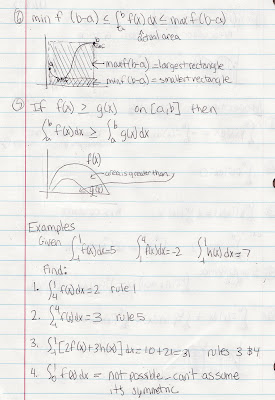 ⑥ min f (b-a) ≤ ∫ₐᵇ f(x)dx ≤ max f (b-a)
actual area
maxf(b-a) = largest rectangle
minf(b-a) = smallest rectangle
a b
⑤ If f(x) ≥ g(x) on [a,b] then
∫ₐᵇ f(x)dx ≥ ∫ₐᵇ g(x)dx
f(x)
area is greater than
g(x)
Examples
Given ∫₋₁¹ f(x)dx=5 ∫₁⁴ f(x)dx=-2 ∫₋₁¹ h(x)dx=7
Find:
1. ∫₄¹ f(x)dx=2 rule 1
2. ∫₋₁⁴ f(x)dx=3 rule 5
3. ∫₋₁¹ [2f(x)+3h(x)] dx=10+21=31 rules 3 & 4
4. ∫₀¹ f(x)dx = not possible - can't assume
its symmetric